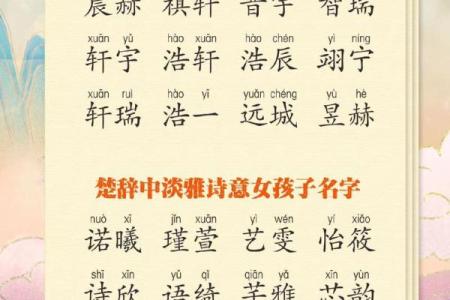 晨赫 祺轩 晋宇 智瑞
xuān yǔ hào xuān hào chén yì níng
轩宇 浩轩 浩辰 翊宁
xuān ruì hào yī yuǎn chéng yù hè
轩瑞 浩一 远城 昱赫
楚辞中淡雅诗意女孩子名字
nuò xī jǐn xuān yì wén yí xiǎo
诺曦 瑾萱 艺雯 怡筱
shī xīn yǔ qǐ qiān yǎ xīn yùn
诗欣 语绮 芊雅 芯韵